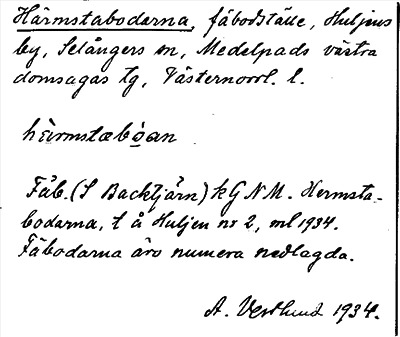 Härmstabodarna, fäbodställe, Huljens
by, Selångers sn, Medelpads västra
domsagas tg, Västernorrl. l.
härmstæbo̯an
Fäb. (S Backtjärn) kGNM. Hermsta-
bodarna, t å Huljen nr 2, ml 1934.
Fäbodarna äro numera nedlagda.
A. Vestlund 1934.